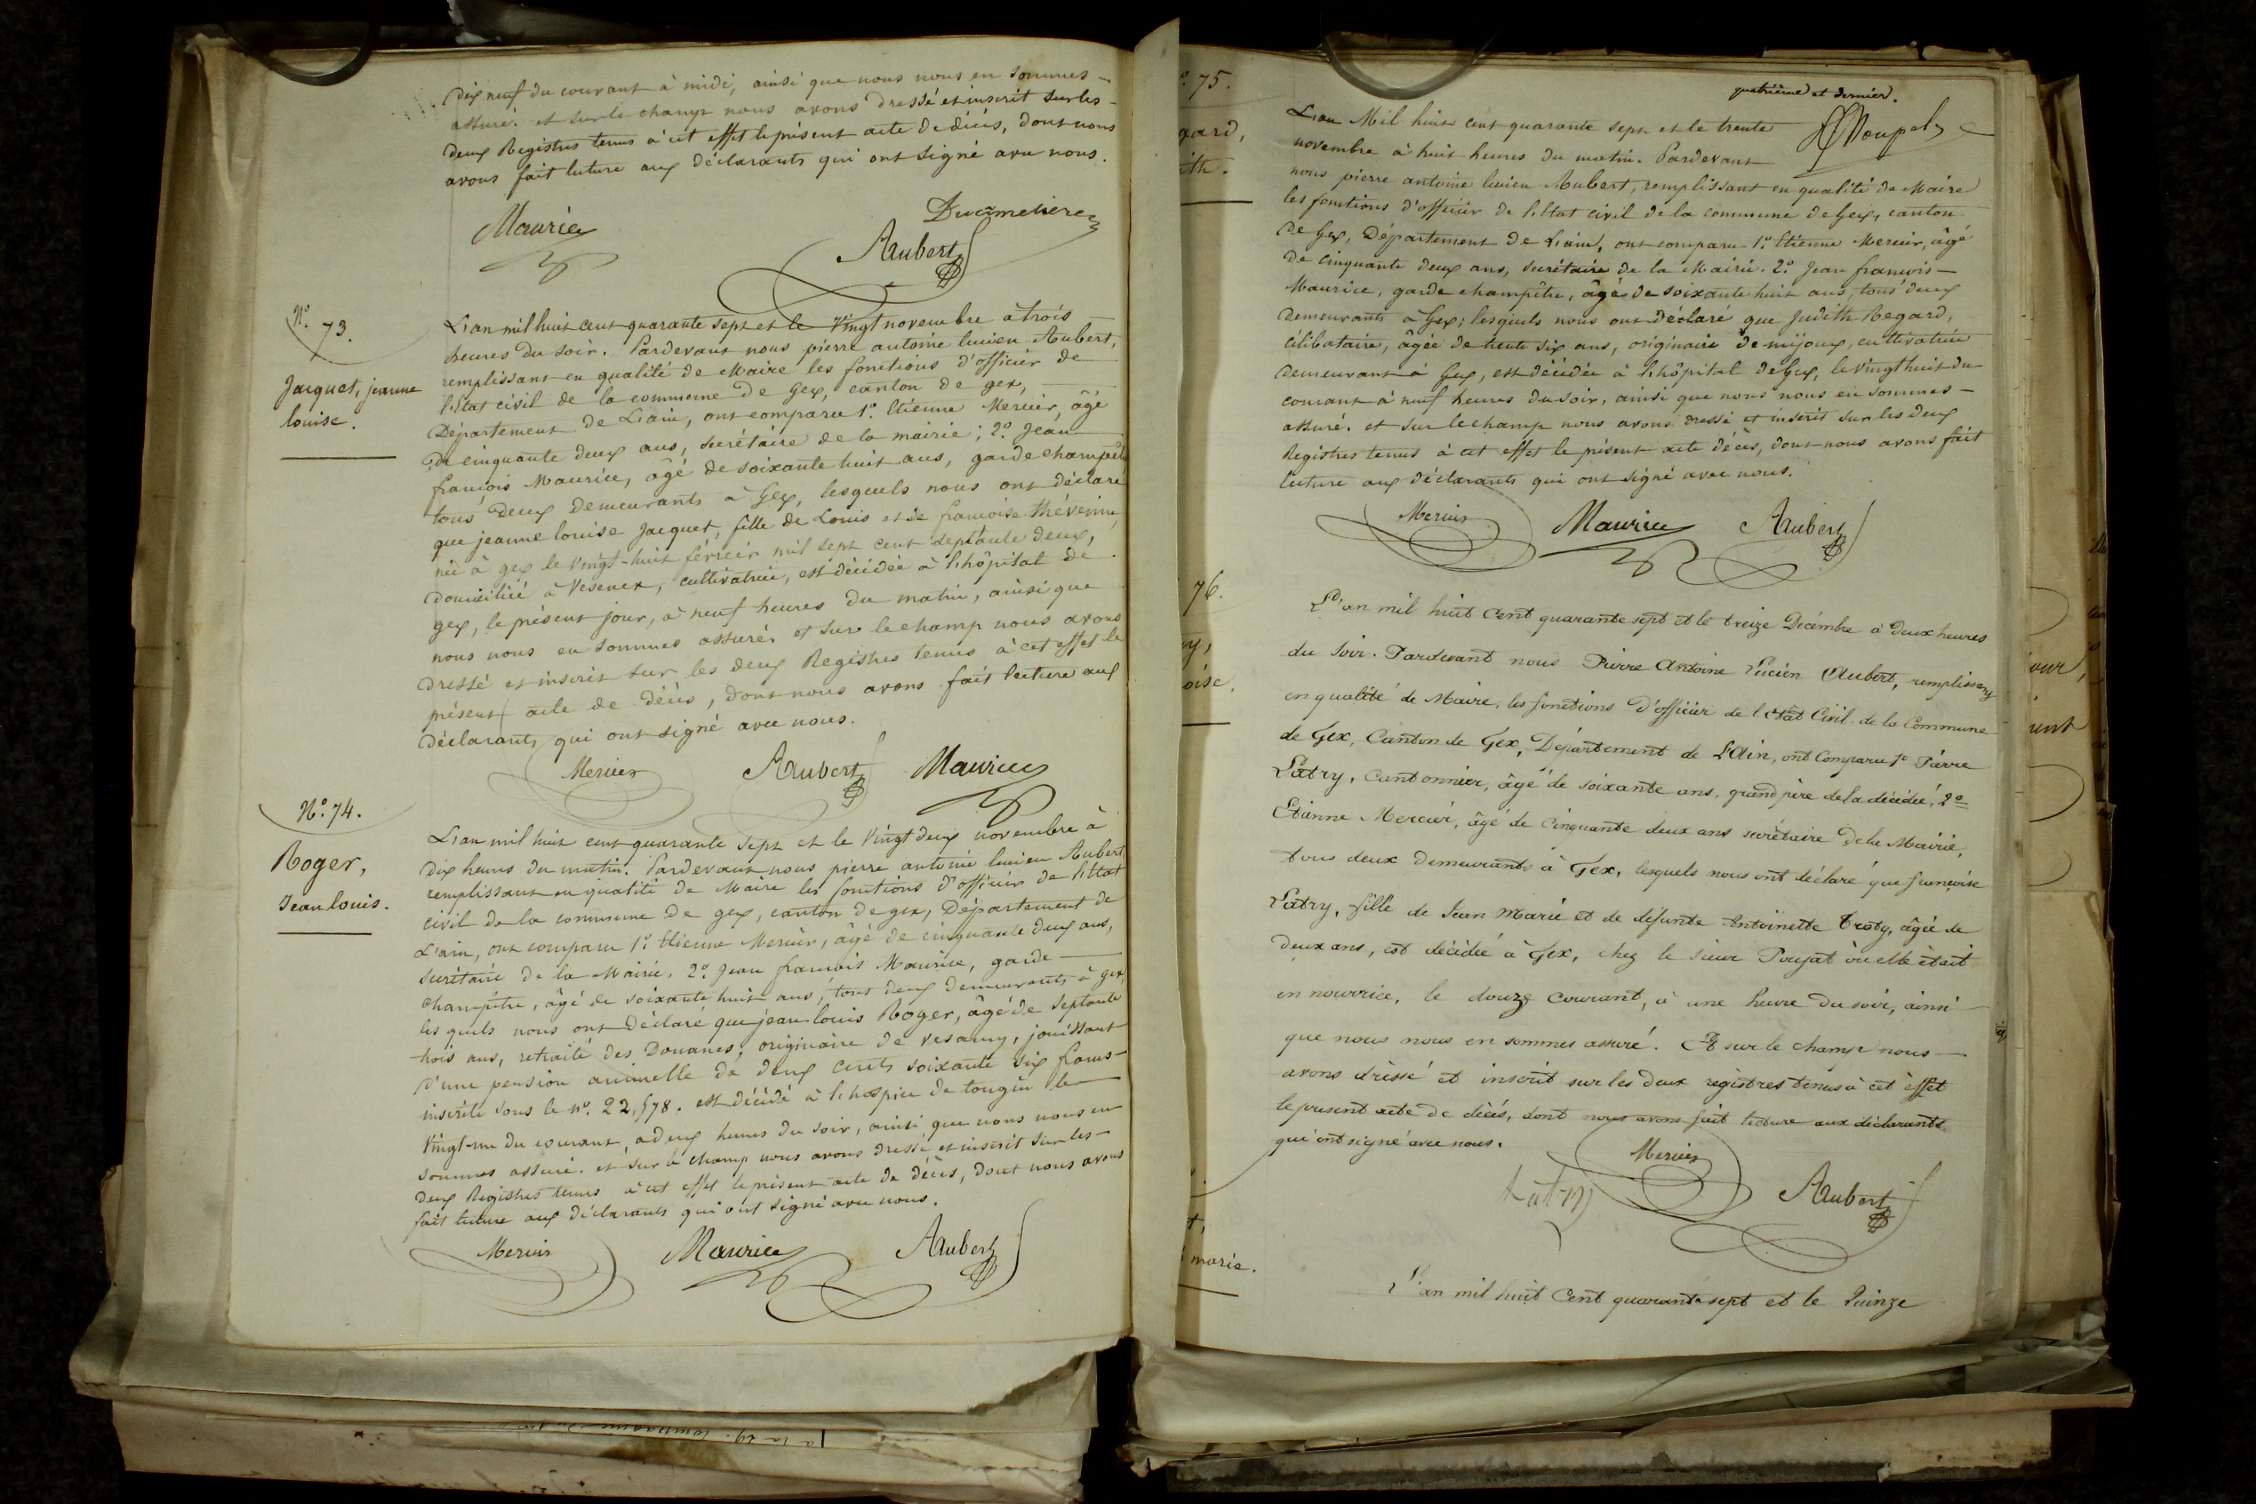 Dix neuf du courant à midi, ainsi que nous nous en sommes
assuré. et sur le champ nous avons dressé et inscrit sur les
deux Registres tenus à cet effet le présent acte de décès, dont nous
avons fait lecture aux déclarants qui ont signé avec nous.
Maurice
Aubert
N° 73.
Jacquet, jeanne
louise.
L'an mil huit cent quarante sept et le vingt novembre à trois
heures du soir. Pardevant nous pierre antoine lucien Aubert,
remplissant en qualité de Maire les fonctions d'officier de
l'Etat civil de la commune de Gex, canton de gex,
Département de L'ain, ont comparu 1° Etienne Mercier, âgé
de cinquante deux ans, secrétaire de la mairie; 2° Jean
françois Maurice, âgé de soixante huit ans, garde champêtre
tous deux demeurants à Gex, lesquels nous ont déclaré
que jeanne louise Jacquet, fille de Louis et de françoise thévenin,
née à gex le vingt-huit février mil sept cent septante deux,
domiciliée à Vesenex, cultivatrice, est décédée à l'hôpital de
gex, le présent jour, à neuf heures du matin, ainsi que
nous nous en sommes assurés et sur le champ nous avons
dressé et inscrit sur les deux Registres tenus à cet effet le
présent acte de décès, dont nous avons fait lecture aux
déclarants qui ont signé avec nous.
Mercier Aubert Maurice
N° 74.
Roger,
Jean louis.
L'an mil huit cent quarante sept et le vingt deux novembre à
dix heures du matin. Pardevant nous pierre antoine lucien Aubert
remplissant en qualité de Maire les fonctions d'officier de l'Etat
civil de la commune de gex, canton de gex, Département de
L'ain, ont comparu 1° Etienne Mercier, âgé de cinquante deux ans,
secrétaire de la Mairie. 2° Jean françois Maurice, garde
champêtre, âgé de soixante huit ans, tous deux demeurants à gex,
lesquels nous ont déclaré que jean louis Roger, âgé de septante
trois ans, retraité des Douanes, originaire de vesancy, jouissant
d'une pension annuelle de deux cents soixante six francs
inscrite sous le n° 22,578. est décédé à l'hospice de tougin le
vingt-un du courant, à deux heures du soir, ainsi que nous nous en
sommes assuré. et sur le champ nous avons dressé et inscrit sur les
deux Registres tenus à cet effet le présent acte de décès, dont nous avons
fait lecture aux déclarants qui ont signé avec nous.
Mercier Maurice Aubert
° 75.
gard,
ith.
quatrième et dernier.
L'an Mil huit cent quarante sept et le trente
novembre à huit heures du matin. Pardevant
nous pierre antoine lucien Aubert, remplissant en qualité de Maire
les fonctions d'officier de l'Etat civil de la commune de Gex, canton
de Gex, Département de L'ain, ont comparu 1° Etienne Mercier, âgé
de cinquante deux ans, secrétaire de la Mairie. 2° Jean françois
Maurice, garde champêtre, âgé de soixante huit ans, tous deux
demeurants à Gex; lesquels nous ont déclaré que Judith Regard,
célibataire, âgée de trente six ans, originaire de mijoux, cultivatrice
demeurant à Gex, est décédée à l'hôpital de Gex, le vingt huit du
courant à neuf heures du soir, ainsi que nous nous en sommes
assuré. et sur le champ nous avons dressé et inscrit sur les deux
Registres tenus à cet effet le présent acte décès, dont nous avons fait
lecture aux déclarants qui ont signé avec nous.
Mercier Maurice Aubert
76.
ry,
oise.
L'an mil huit cent quarante sept et le treize Décembre à deux heures
du soir. Pardevant nous Pierre Antoine Lucien Aubert, remplissant
en qualité de Maire, les fonctions d'officier de l'état Civil de la Commune
de Gex, Canton de Gex, Département de L'Ain, ont Comparu 1° Pierre
Latry, Cantonnier, âgé de soixante ans, grand père de la décédée, 2°
Etienne Mercier, âgé de Cinquante deux ans secrétaire de la Mairie,
tous deux demeurants à Gex, lesquels nous ont déclaré que françoise
Latry, fille de Jean Marie et de défunte Antoinette Croty, âgée de
deux ans, est décédée à Gex, chez le sieur Poujat où elle était
en nourrice, le douze Courant, à une heure du soir, ainsi
que nous nous en sommes assuré. Et sur le champ nous
avons dressé et inscrit sur les deux registres tenus à cet effet
le présent acte de décès, dont nous avons fait lecture aux déclarants
qui ont signé avec nous.
Mercier
Latry Aubert
t,
marie.
L'an mil huit Cent quarante sept et le Quinze